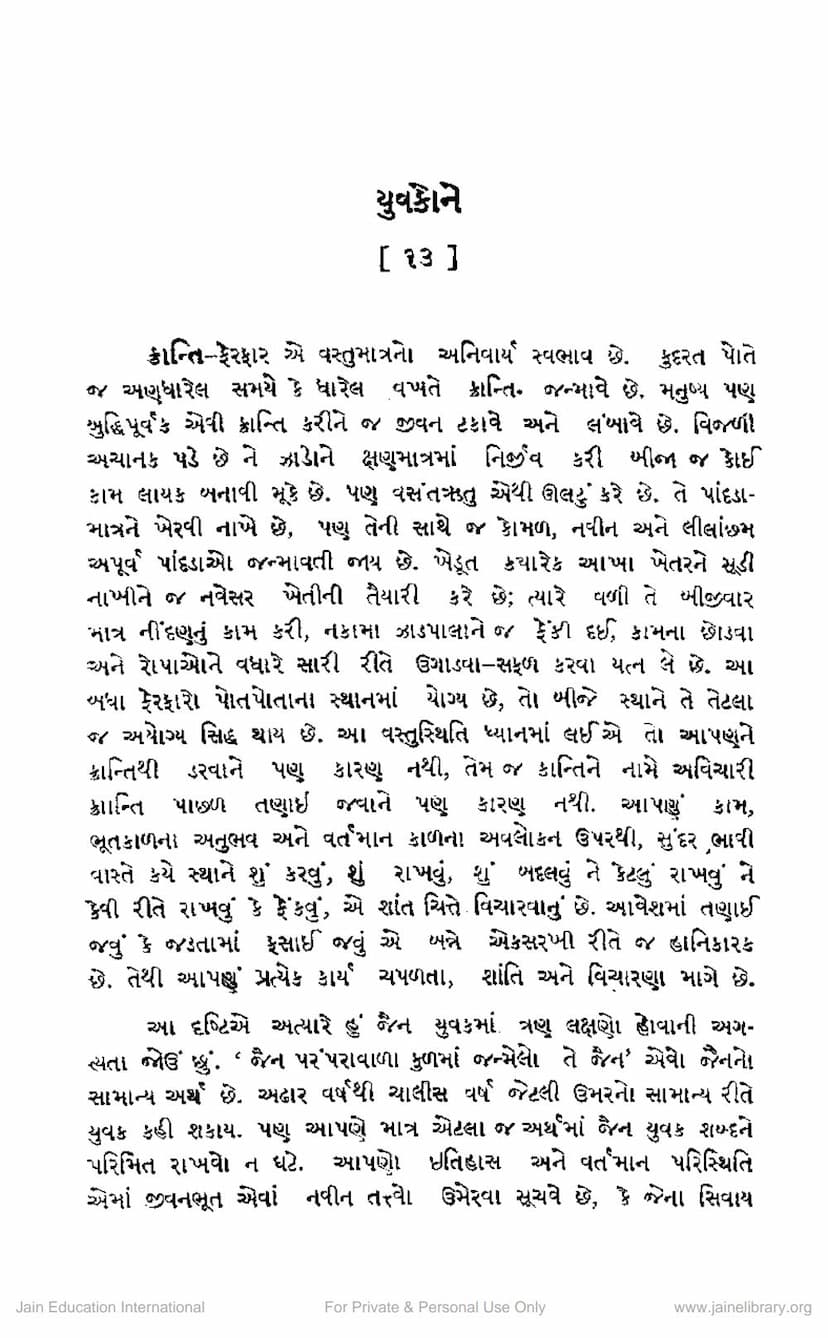 યુવકોને
[ ૧૩ ]
ક્રાન્તિ–ફેરફાર એ વસ્તુમાત્રનો અનિવાર્ય સ્વભાવ છે. કુદરત પોતે
જ અણધારેલ સમયે કે ધારેલ વખતે ક્રાન્તિ. જન્માવે છે. મનુષ્ય પણ
બુદ્ધિપૂર્વક એવી ક્રાન્તિ કરીને જ જીવન ટકાવે અને લંબાવે છે. વિજળી
અચાનક પડે છે ને ઝાડોને ક્ષણમાત્રમાં નિર્જીવ કરી બીજા જ કોઈ
કામ લાયક બનાવી મૂકે છે. પણ વસંતઋતુ એથી ઊલટું કરે છે. તે પાંદડા-
માત્રને ખેરવી નાખે છે, પણ તેની સાથે જ કોમળ, નવીન અને લીલાંછમ
અપૂર્વ પાંદડાઓ જન્માવતી જાય છે. ખેડૂત ક્યારેક આખા ખેતરને સૂડી
નાખીને જ નવેસર ખેતીની તૈયારી કરે છે; ત્યારે વળી તે બીજીવાર
માત્ર નીંદણનું કામ કરી, નકામા ઝાડપાલાને જ ફેંકી દઈ, કામના છોડવા
અને રોપાઓને વધારે સારી રીતે ઉગાડવા–સફળ કરવા યત્ન લે છે. આ
બધા ફેરફારો પોતપોતાના સ્થાનમાં યોગ્ય છે, તો બીજે સ્થાને તે તેટલા
જ અયોગ્ય સિદ્ધ થાય છે. આ વસ્તુસ્થિતિ ધ્યાનમાં લઈએ તો આપણને
ક્રાન્તિથી ડરવાને પણ કારણ નથી, તેમ જ કાન્તિને નામે અવિચારી
ક્રાાન્તિ પાછળ તણાઇ જવાને પણ કારણ નથી. આપણું કામ,
ભૂતકાળના અનુભવ અને વર્તમાન કાળના અવલોકન ઉપરથી, સુંદર ભાવી
વાસ્તે કયે સ્થાને શું કરવું, શું રાખવું, શું બદલવું ને કેટલું રાખવું ને
કેવી રીતે રાખવું કે ફેંકવું, એ શાંત ચિત્તે વિચારવાનું છે. આવેશમાં તણાઈ
જવું કે જડતામાં ફસાઈ જવું એ બન્ને એકસરખી રીતે જ હાનિકારક
છે. તેથી આપણું પ્રત્યેક કાર્ય ચપળતા, શાંતિ અને વિચારણા માગે છે.
આ દષ્ટિએ અત્યારે હું જૈન યુવકમાં ત્રણ લક્ષણો હોવાની અગ-
ત્યતા જોઉં છું. ‘ જૈન પરંપરાવાળા કુળમાં જન્મેલો તે જૈન’ એવો જૈનનો
સામાન્ય અર્થ છે. અઢાર વર્ષથી ચાલીસ વર્ષ જેટલી ઉમરનો સામાન્ય રીતે
યુવક કહી શકાય. પણ આપણે માત્ર એટલા જ અર્થમાં જૈન યુવક શબ્દને
પરિમિત રાખવો ન ઘટે. આપણો ઇતિહાસ અને વર્તમાન પરિસ્થિતિ
એમાં જીવનભૂત એવાં નવીન તત્ત્વો ઉમેરવા સૂચવે છે, કે જેના સિવાય
Jain Education International For Private & Personal Use Only www.jainelibrary.org